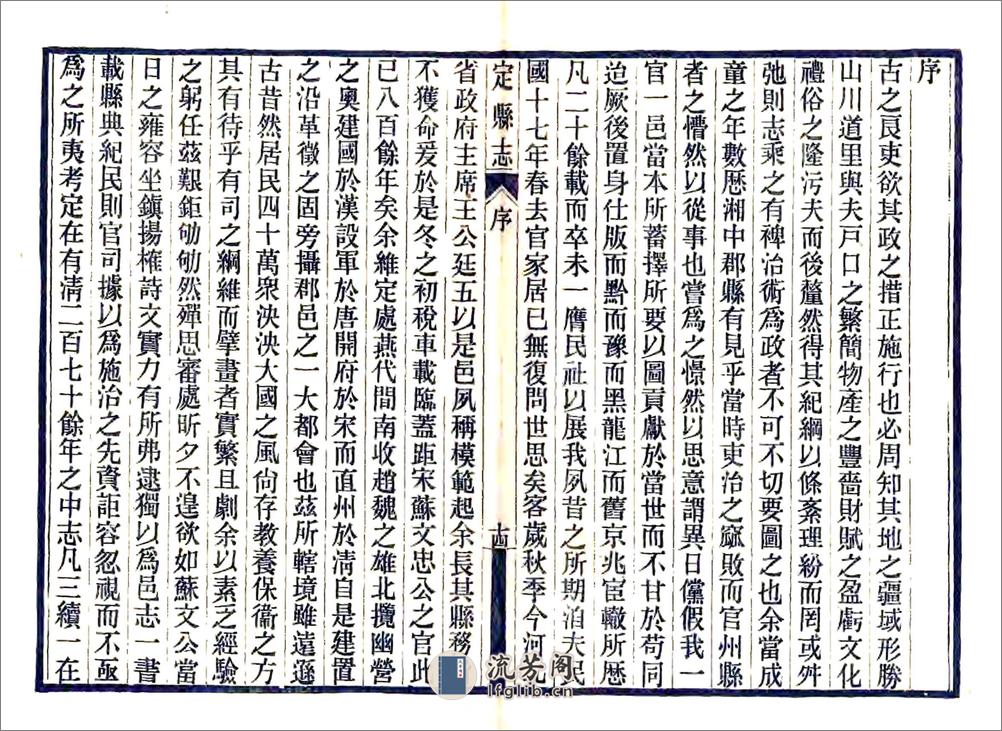 序
古之良吏欲其政之措正施行也必周知其地之疆域形勝
山川道里與夫戸口之繁簡物產之豐嗇財賦之盈虧文化
禮俗之隆污夫而後釐然得其紀綱以條紊理紛而罔或舛
弛則志乘之有裨治術爲政者不可不切要圖之也余當成
童之年數歷湘中郡縣有見乎當時吏治之窳敗而官州縣
者之懵然以從事也嘗爲之憬然以思意謂異日儻假我一
官一邑當本所蓄擇所要以圖貢獻於當世而不甘於苟同
迨厥後置身仕版而黔而豫而黑龍江而舊京兆宦轍所歷
凡二十餘載而卒未一膺民社以展我夙昔之所期洎夫民
國十七年春去官家居已無復問世思矣客歲秋季今河北
定縣志
序
十四
省政府主席王公廷五以是邑夙稱模範起余長其縣務
不獲命爰於是冬之初稅車載臨蓋距宋蘇文忠公之官此
已八百餘年矣余維定處燕代間南收趙魏之雄北攬幽營
之奧建國於漢設軍於唐開府於宋而直州於清自是建置
之沿革徵之固旁攝郡邑之一大都會也茲所轄境雖遠遜
古昔然居民四十萬衆泱泱大國之風尙存教養保衞之方
其有待乎有司之綱維而擘畫者實繁且劇余以素乏經驗
之躬任茲艱鉅劬劬然殫思審處昕夕不遑欲如蘇文公當
日之雍容坐鎭揚榷詩文實力有所弗逮獨以爲邑志一書
載縣典紀民則官司據以爲施治之先資詎容忽視而不亟
爲之所夷考定在有清二百七十餘年之中志凡三續一在
流芳阁
lfglib.cn